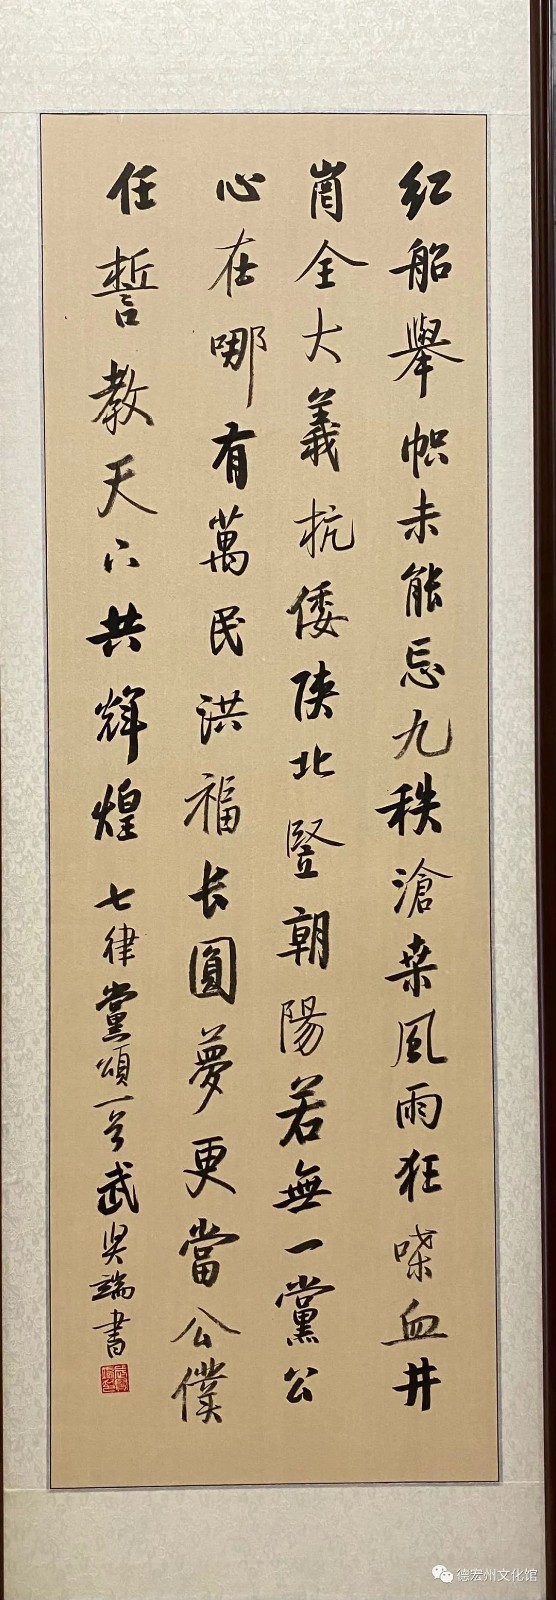 紅船舉幟未能忘九秩滄桑風雨狂喋血井
崗全大義抗倭陝北豎朝陽若無一黨公
心在哪有萬民洪福长圓夢更當公僕
任誓教天下共輝煌七律黨頌一首武吳端書
德宏州文化馆